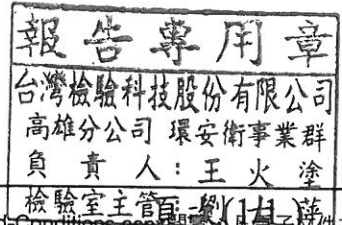 報告專用章
台灣檢驗科技股份有限公司
高雄分公司 環安衛事業群
負責人：王火塗
檢驗室主管：劉